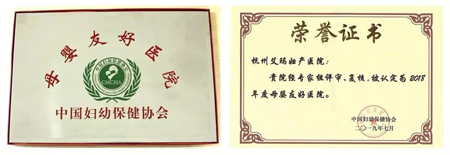 母婴友好医院
CMCHA
中国妇幼保健协会
荣誉证书
杭州艾玛妇产医院:
贵院经专家组评审、复核,被认定为2018
年度母婴友好医院。
中国妇幼保健协会
二〇一九年七月